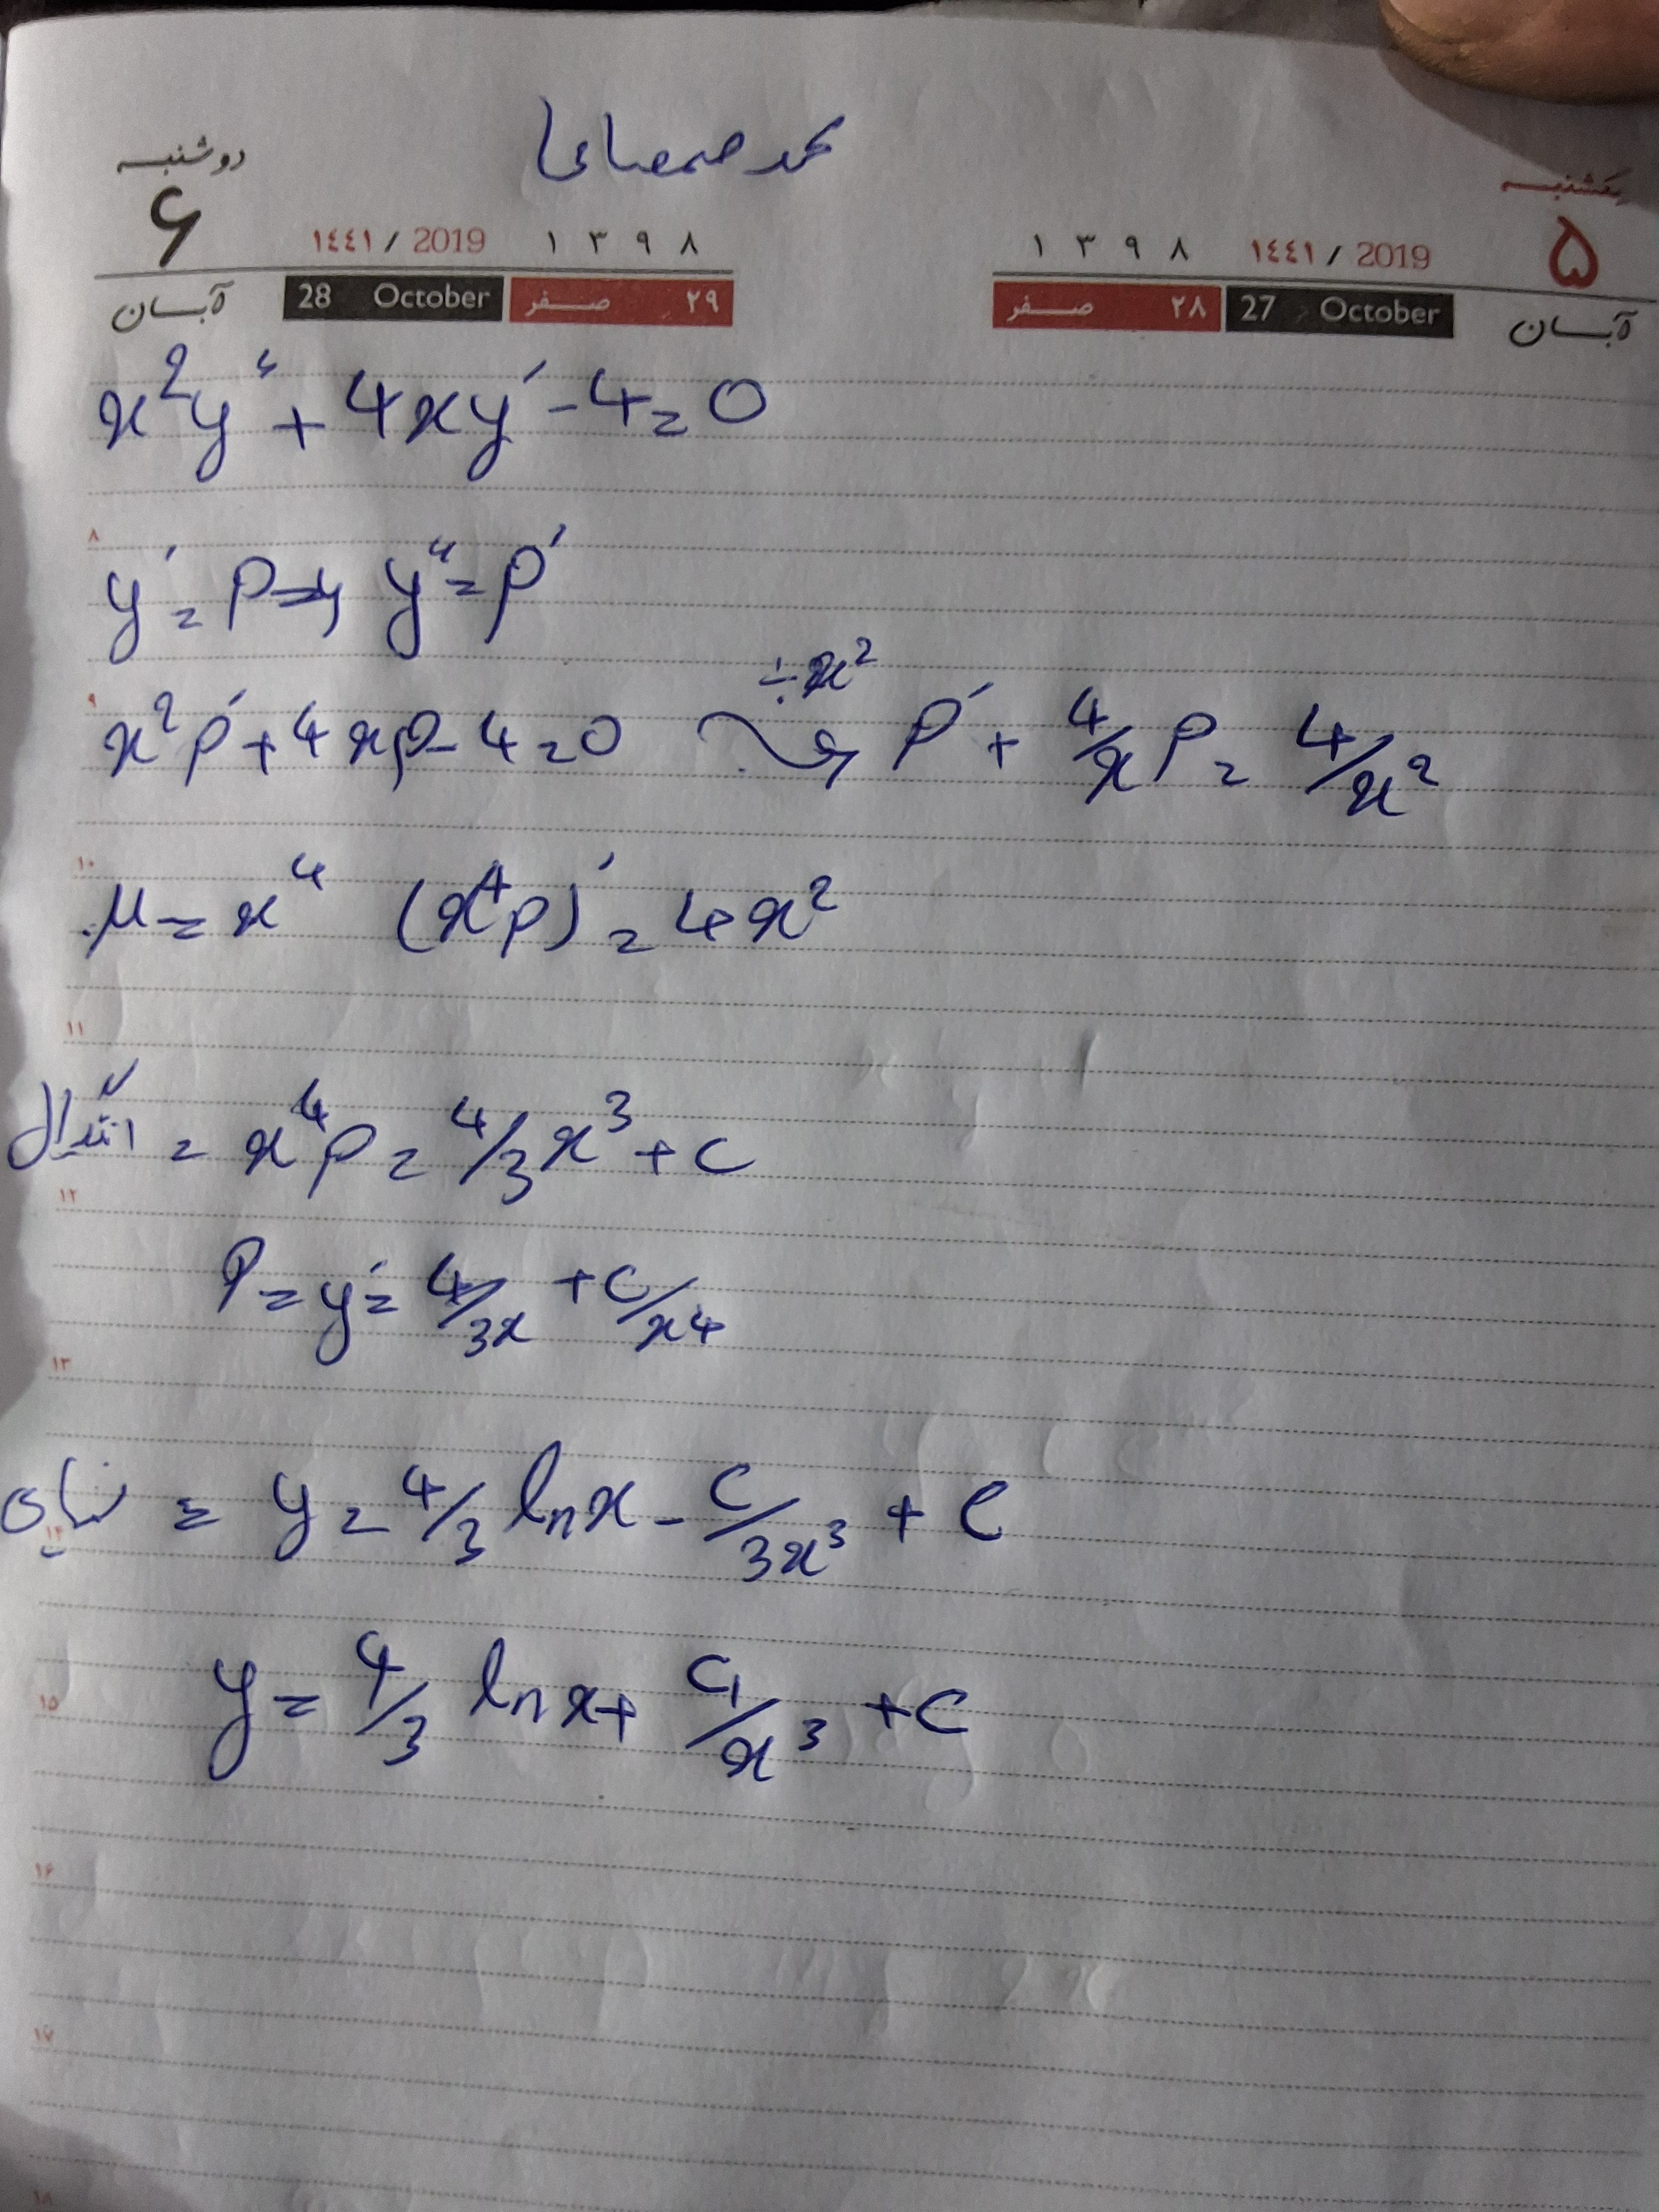 محمد صمصامی
دوشنبه ۶ آبان ۱۴۴۱ / 2019 ۱۳۹۸ 28 October ۲۹ صفر
یکشنبه ۵ آبان ۱۳۹۸ ۱۴۴۱ / 2019 ۲۸ صفر 27 October
x²y" + 4xy' - 4 = 0
۸
y' = p ⇒ y" = p'
÷x²
۹ x²p' + 4xp - 4 = 0 → p' + 4/x p = 4/x²
۱۰
μ = x⁴ (x⁴p)' = 4x²
۱۱
انتگرال = x⁴p = 4/3 x³ + c
۱۲
P = y' = 4/3x + c/x⁴
۱۳
y = 4/3 ln x - c/3x³ + c
۱۴
y = 4/3 ln x + c₁/x³ + c
۱۵
۱۶
۱۷
۱۸